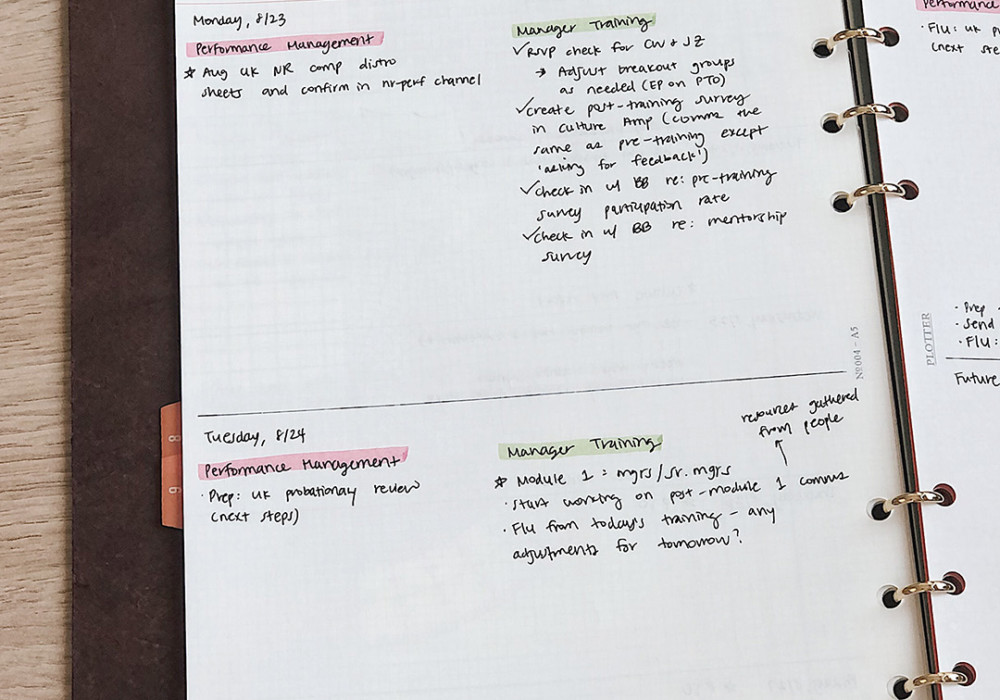 Monday, 8/23
Performance Management
☆ Aug UK NR comp distro
sheets and confirm in nr-perf channel
Manager Training
✓RSVP check for CW + JZ
→ Adjust breakout groups
as needed (EP on PTO)
✓create post-training survey
in culture Amp (comms the
same as pre-training except
'asking for feedback')
✓check in w/ BB re: pre-training
survey participation rate
✓check in w/ BB re: mentorship
survey
Tuesday, 8/24
Performance Management
· Prep: UK probationay review
(next steps)
resources gathered
from people
↑
Manager Training
☆ Module 1: mgrs/sr. mgrs
· start working on post-module 1 comms
· Flu from today's training - any
adjustments for tomorrow?
8
9
Nº004 - A5
PLOTTER
Performance
· Flu: UK
(next
· Prep
· Send
· Flu:
Future